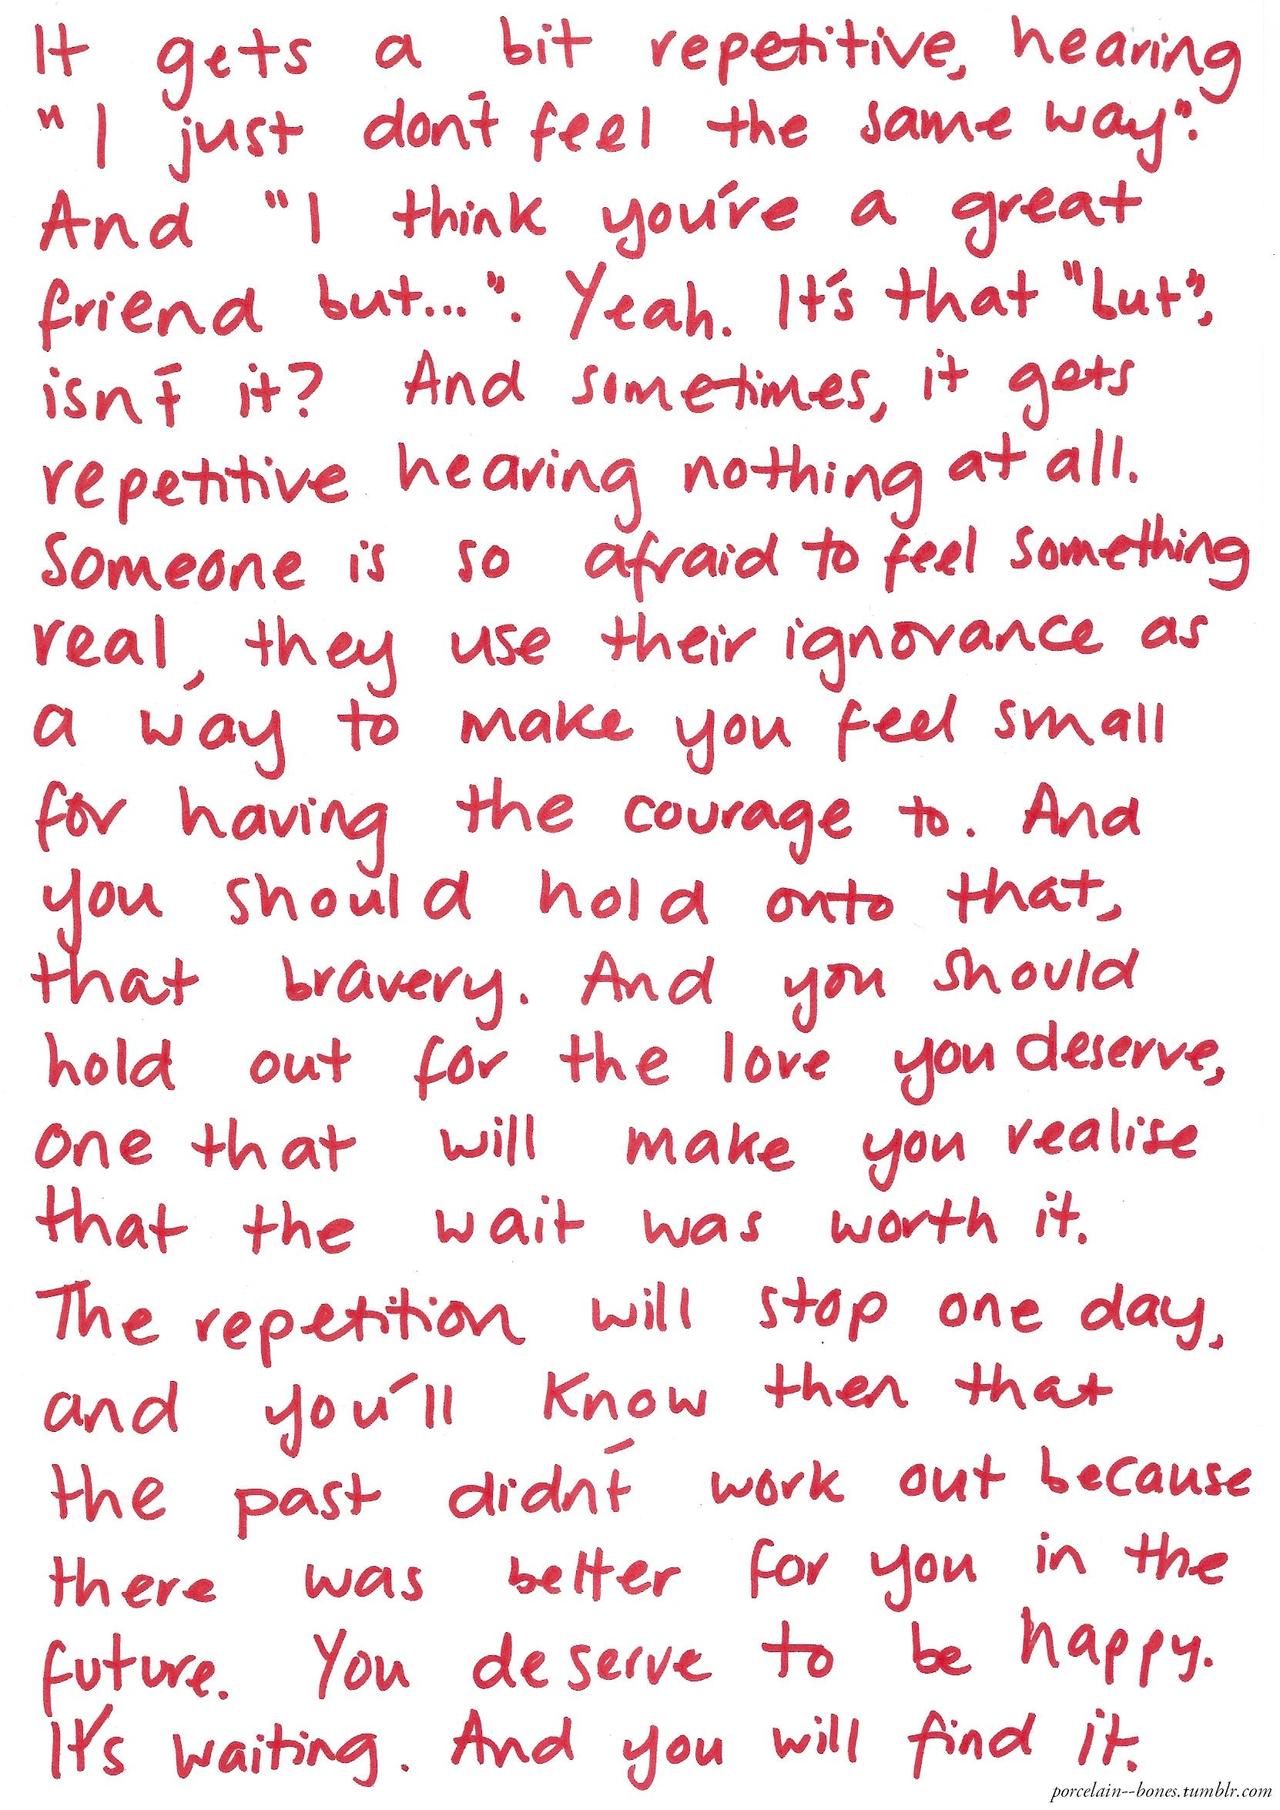 It gets a bit repetitive, hearing
"I just don't feel the same way".
And "I think you're a great
friend but...". Yeah. It's that "but",
isn't it? And sometimes, it gets
repetitive hearing nothing at all.
Someone is so afraid to feel something
real, they use their ignorance as
a way to make you feel small
for having the courage to. And
you should hold onto that,
that bravery. And you should
hold out for the love you deserve,
one that will make you realise
that the wait was worth it.
The repetition will stop one day,
and you'll know then that
the past didn't work out because
there was better for you in the
future. You deserve to be happy.
It's waiting. And you will find it.
porcelain--bones.tumblr.com